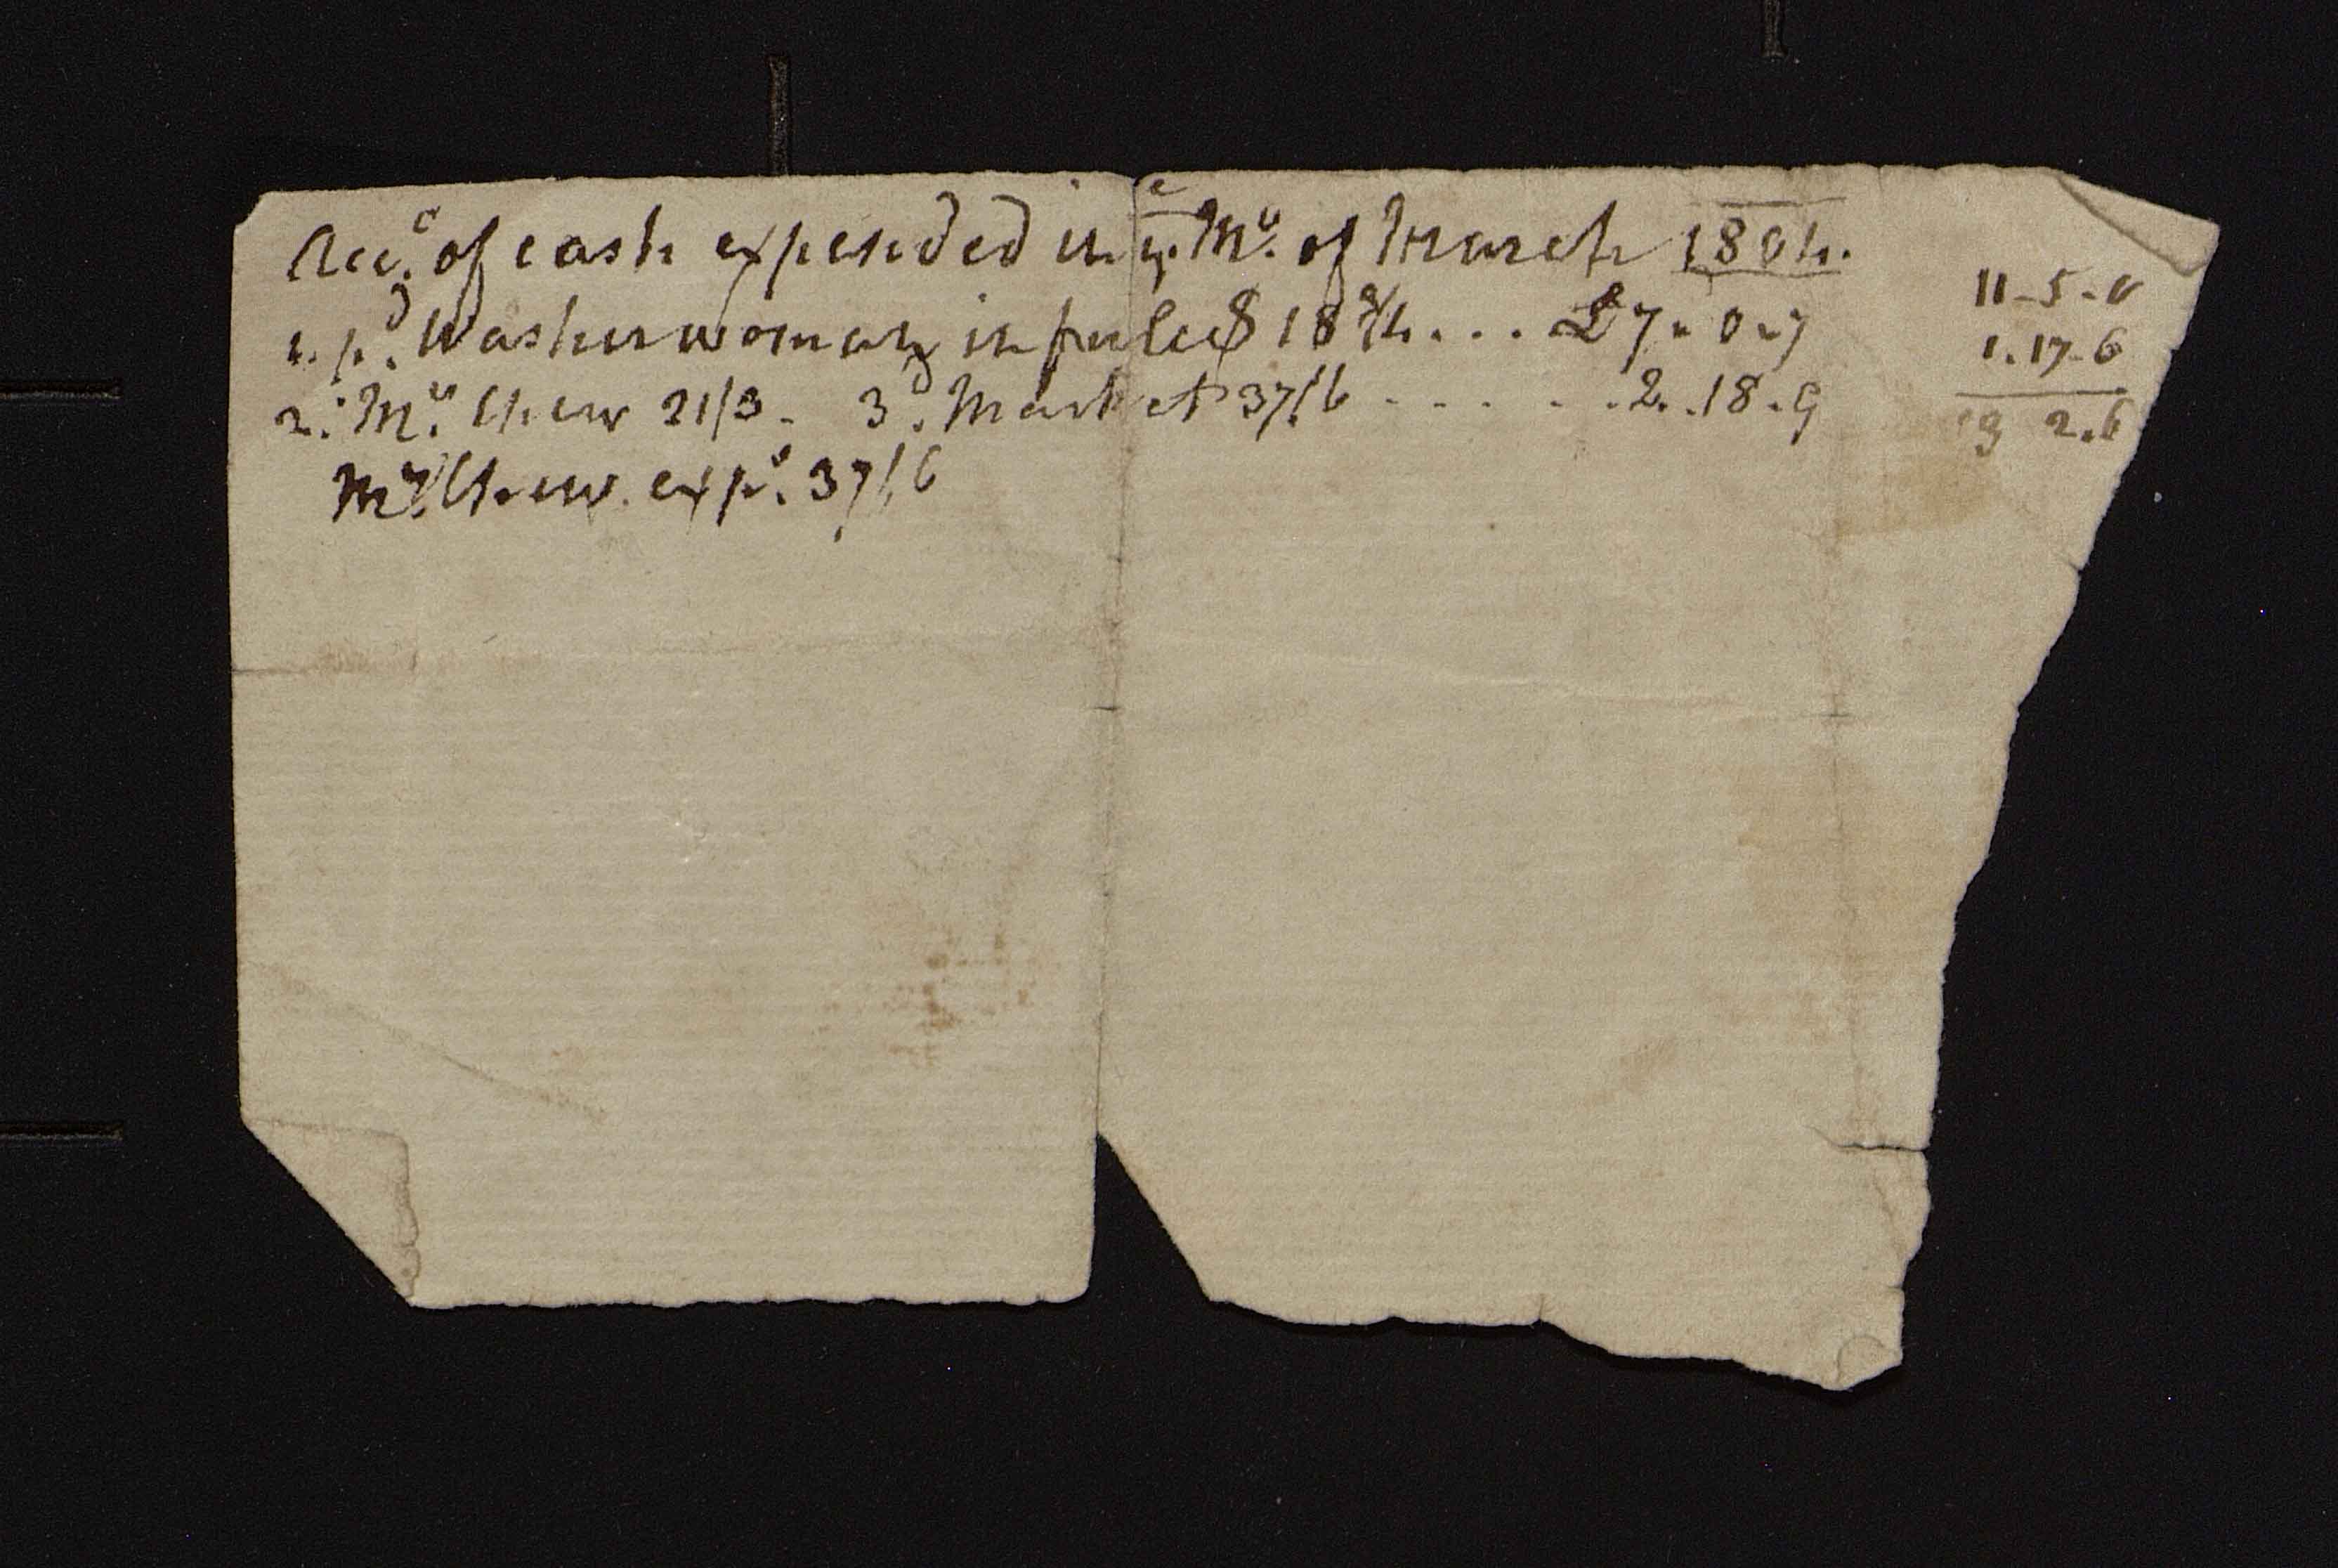 Acct. of cash expended in ye. Mo. of March 1804.
1. pd. Washerwoman in full $ 18 3/4 . . . £7 - 0 - 7
2. Mr. Chew 21/3 - 3d. Market 37/6 - - - - - . 2 . . 18 . 9
Mr. Chew expe. 37/6
11 - 5 - 0
1 . 17 - 6
13 2 . 6